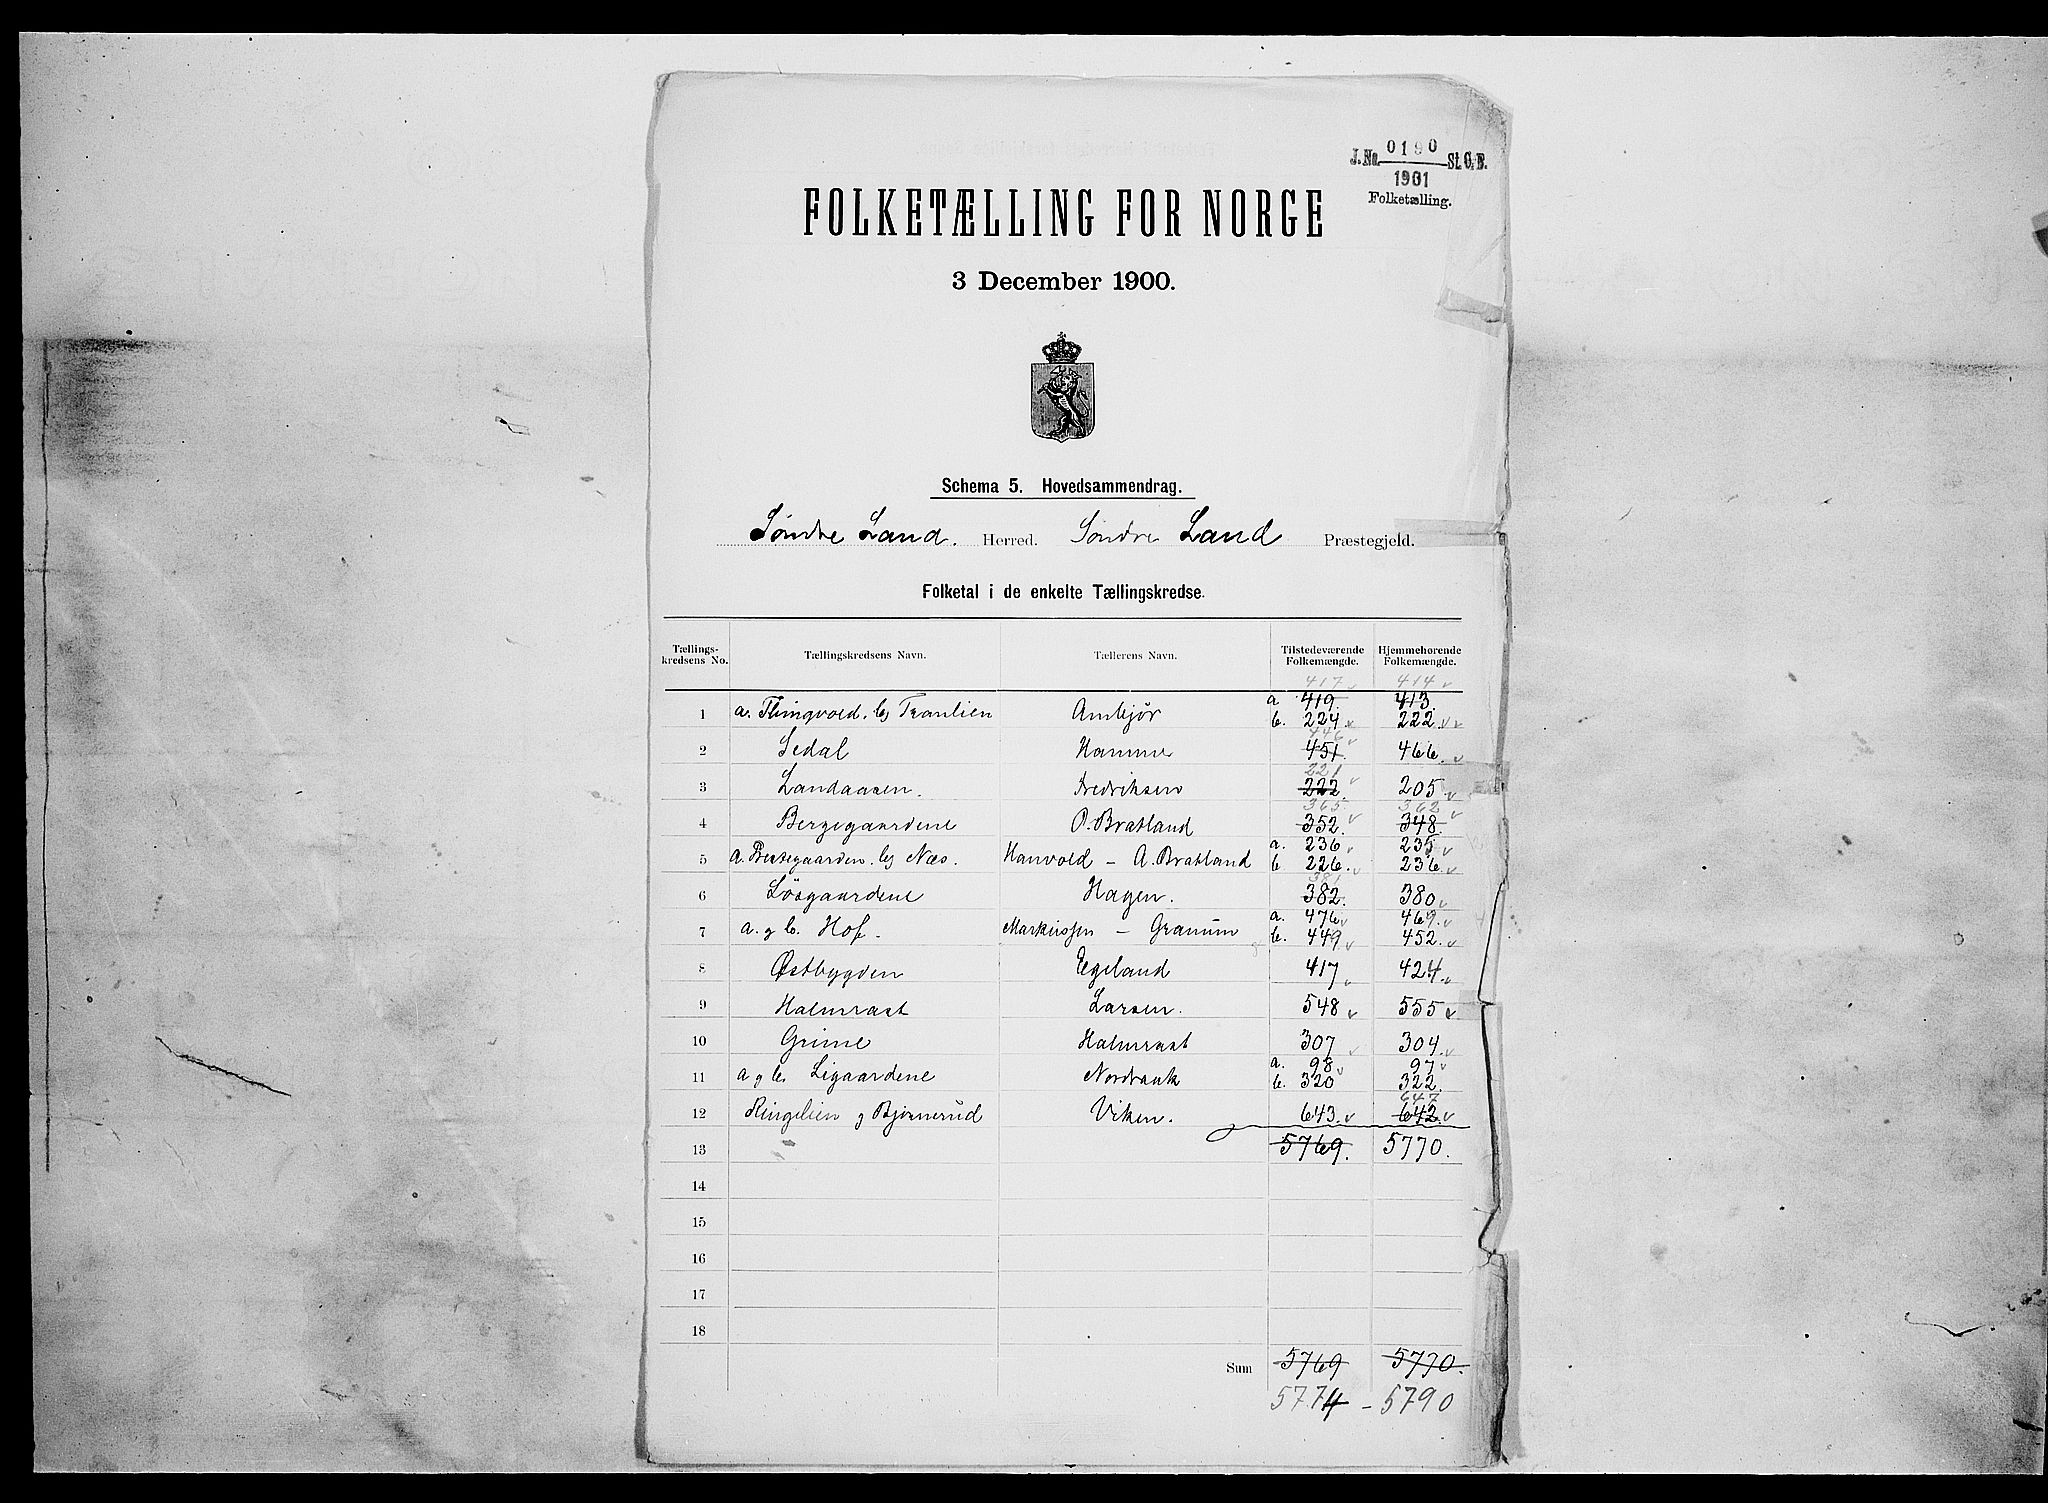 J.No. 0190 St.C.B.
1901
Folketælling.
FOLKETÆLLING FOR NORGE
3 December 1900.
Schema 5. Hovedsammendrag.
Søndre Land. Herred. Søndre Land Præstegjeld.
Folketal i de enkelte Tællingskredse.
Tællings-kredsens No. Tællingskredsens Navn. Tællerens Navn. Tilstedeværende Folkemængde. Hjemmehørende Folkemængde.
417 414
1 a. Flingvold. b) Tranlien Ambjør a 419. 413.
b. 224 222
446
2 Sedal Hammer 451. 466.
221
3 Landaasen. Fredriksen 222. 205.
365. 362
4 Bergegaardene O. Bratland 352. 348.
5 a. b) Næs. Hanvold - A. Bratland a. 236 235
b 226. 236.
381
6 Løsgaardene Hagen. 382. 380
7 a. g b. Hof. Markussen - Granum a. 476 469.
b. 449 452.
8 Østbygden Egeland 417 424
9 Halmrast Larsen. 548 555
10 Grime Halmrast 307 304
11 a g b. Ligaardene Nordraak a. 98 97
b. 320 322.
647
12 Ringelien g Bjørnerud Viken. 643. 642.
13 5769. 5770.
14
15
16
17
18
Sum 5769 5770.
5774 - 5790